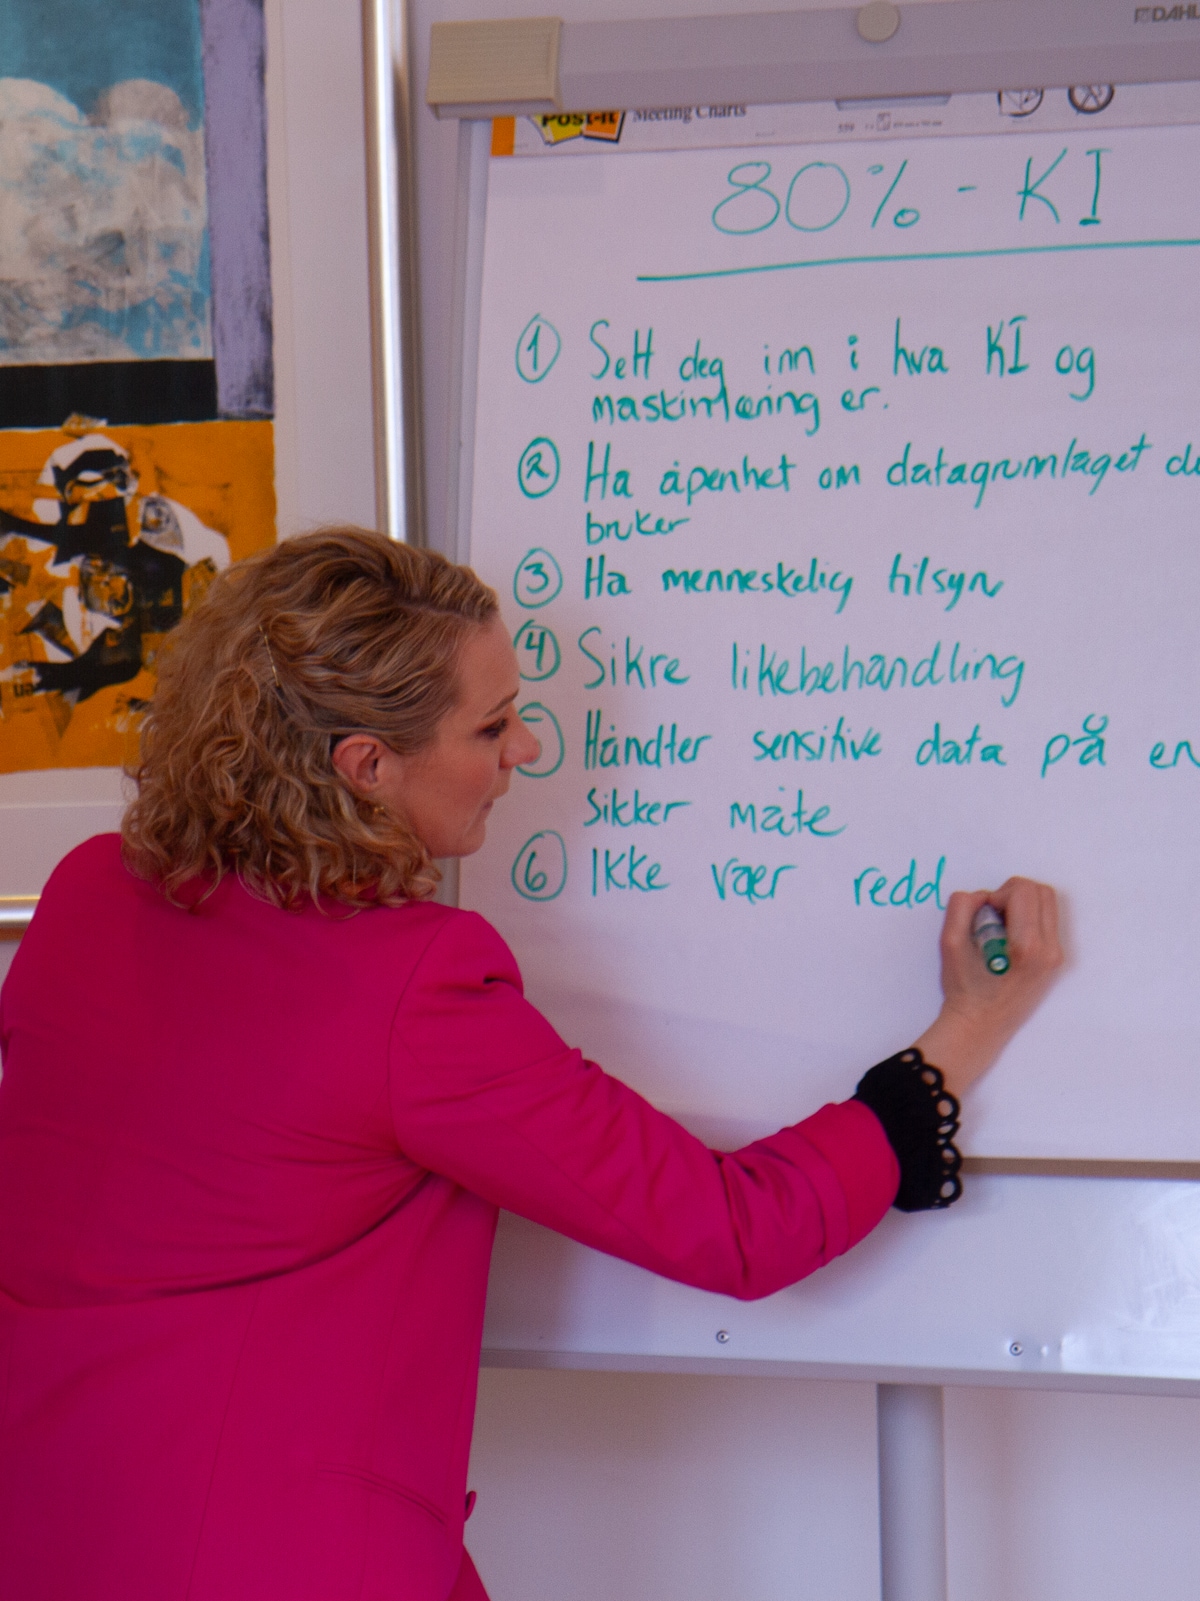 DAHL
Post-it Meeting Charts
559
80% - KI
1 Sett deg inn i hva KI og
maskinlæring er.
2 Ha åpenhet om datagrunnlaget du
bruker
3 Ha menneskelig tilsyn
4 Sikre likebehandling
Håndter sensitive data på en
sikker måte
6 Ikke vær redd